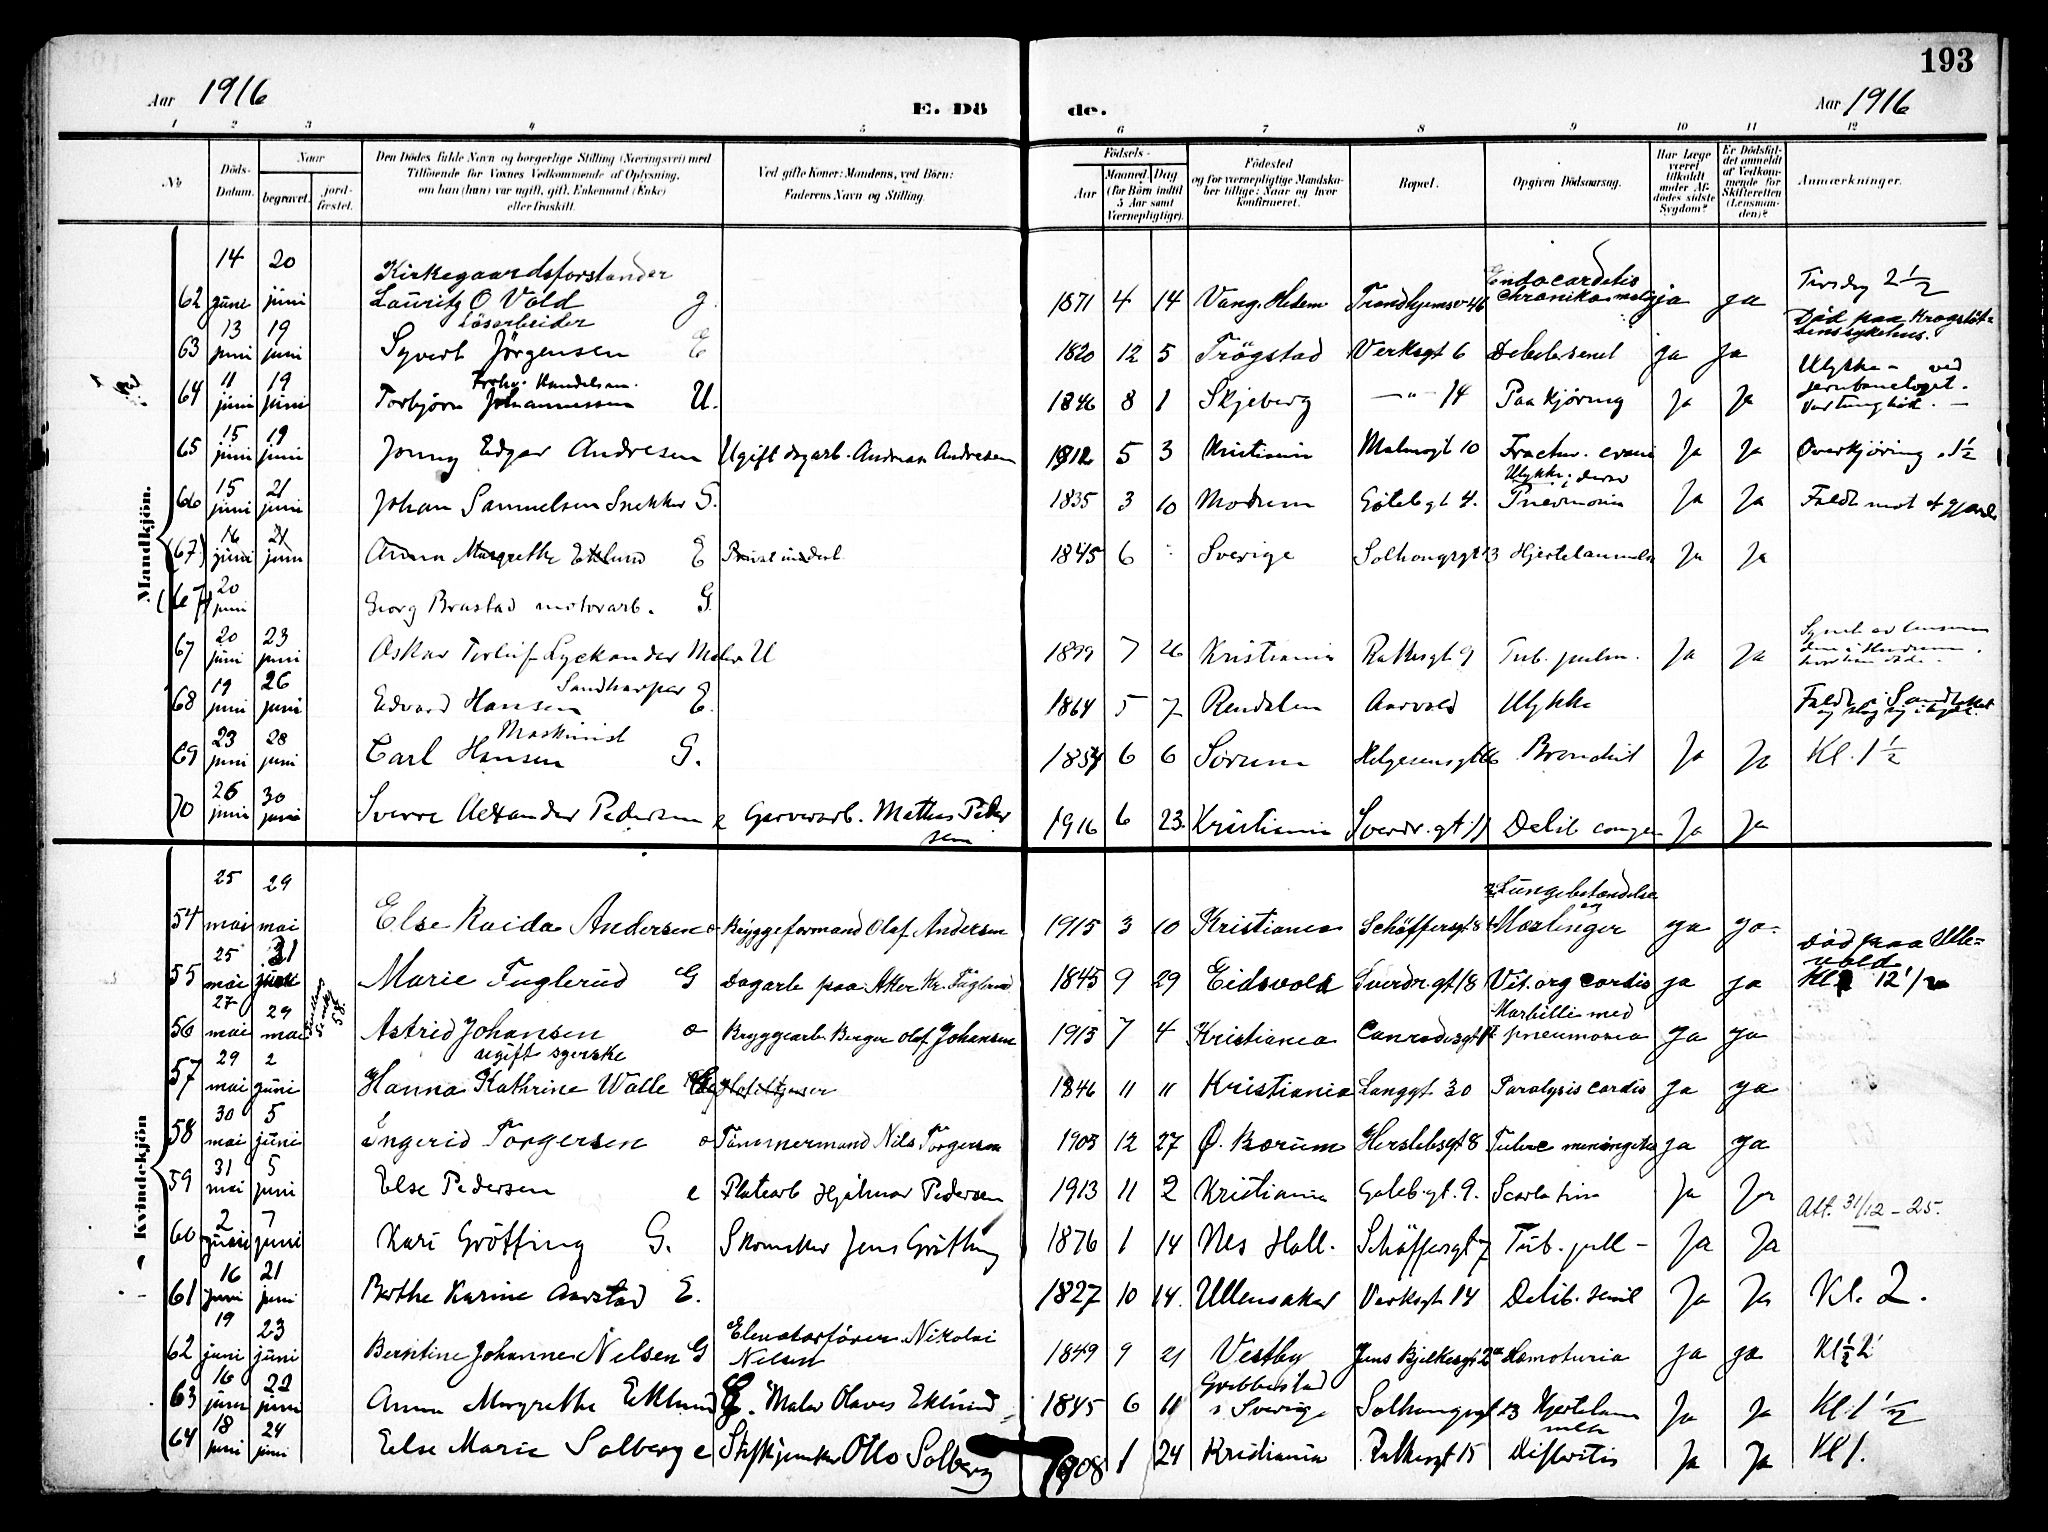 193
Aar 1916 E. Dö de. Aar 1916
1 2 3 4 5 6 7 8 9 10 11 12
No Döds-Datum. Naar begravet. jord-fæstet. Den Dödes fulde Navn og borgerlige Stilling (Næringsvei) med Tilföiende for Voxnes Vedkommende af Oplysning, om han (hun) var ugift, gift, Enkemand (Enke) eller fraskilt. Ved gifte Koner: Mandens, ved Börn: Faderens Navn og Stilling. Födsels- Aar Maaned Dag (for Börn indtil 5 Aar samt Værnepligtige). Födested og for værnepligtige Mandska-ber tillige: Naar og hvor konfirmeret. Bopæl. Opgiven Dödsaarsag. Har Læge været tilkaldt under Af-dödes sidste Sygdom? Er Dödsfal-det anmeldt af Vedkom-mende for Skifteretten (Lensman-den)? Anmærkninger.
Mandkjön.
62 14 juni 20 juni Kirkegaardsforstander Lauritz O Vold g. 1871 4 14 Vang. Hedem Trondhjemsv 46 Endocarditis chronika ja ja Tirsdag 2 1/2
63 13 juni 19 juni Lösarbeider Syvert Jörgensen E 1820 12 5 Trögstad Verksgt 6 ja ja Död paa Krogstöt-tens sykehus.
64 11 juni 19 juni Torbjörn Johannessen U. 1846 8 1 Skjeberg —"— 14 Paakjöring Ja Ja Ulykke - ved jernbanetoget. var tunghört. —
65 15 juni 19 juni Jonny Edgar Andresen Ugift dagarb. Andreas Andresen 1912 5 3 Kristiania Malmogt 10 Fractur. cranii Ja Ja Overkjöring. 1 1/2
66 15 juni 21 juni Johan Samuelsen Snekker G. 1835 3 10 Modum Götebgt 4. Ulykke; Pneumoni Ja Ja Faldt mot et gjerde
(67) 16 juni 21 juni Anna Margrethe Eklund E Privat underst 1845 6 Sverige Solhaugsgt 3 Hjertelammelse Ja Ja
(67) 20 juni Georg Brustad motorarb. G.
67 20 juni 23 juni Oskar Torleif Lyckander Maler U 1899 7 26 Kristiania Rathkesgt 9 Tub. pulm. Ja Ja
68 19 juni 26 juni Edvard Hansen Sandharper E. 1864 5 7 Rendalen Aarvold Ulykke Faldt i Sandtaket
69 23 juni 28 juni Carl Hansen Maskinist G. 1854 6 6 Sorum Helgesensgt 66 Bronchit Ja Ja Kl. 1 1/2
70 26 juni 30 juni Sverre Alexander Pedersen e Garverarb. Mathias Peder sen 1916 6 23. Kristiania Sverdr. gt. 11 Debil congen Ja Ja
Kvindekjön
54 25 mai 29 mai Else Raida Andersen e Bryggeformand Olaf Andersen 1915 3 10 Kristiania Schöffersgt 8 Lungebetændelse og Mæslinger ja ja.
55 25 mai 31 Marie Fuglerud G Dagarb paa Aker Kr. Fuglerud 1845 9 29 Eidsvold Sverdr.gt 18 Vit. org cordis ja ja Död paa Ulle=vold Kl 12 1/2
56 27 mai 29 mai Astrid Johansen e Bryggearb. Birger Olaf Johansen 1915 7 4 Kristiania Conradisgt Morbilli med pneumonia Ja ja
57 29 mai 2 juni ugift syerske Hanna Kathrine Walle 1846 11 11 Kristiania Langgt 30 Paralysis cordis ja ja
58 30 mai 5 juni Ingerid Torgersen e Tömmermand Nils Torgersen 1903 12 27 Ø. Bærum Herslebsgt 8 Tuberc meningitis ja ja
59 31 mai 5 juni Else Pedersen e Platearb Hjalmar Pedersen 1913 11 2 Kristiania Goteb.gt. 9. Scarlatina Ja Ja
60 2 juni 7 juni Kari Gröthing G. Skomaker Jens Gröthing 1876 1 14 Nes Hall. Schöffersgt 7 Tub. pull - Ja Ja Att. 31/12 - 25.
61 16 juni 21 juni Berthe Karine Aarstad E. 1827 10 14. Ullensaker Verksgt 14 Debil. senil Ja Ja Kl. 2.
62 19 juni 23 juni Berntine Johanne Nilsen G Elevatorförer Nikolai Nilsen 1849 9 21 Vestby Jens Bjelkesgt 2 Hæmoturia ja ja Kl 1/2 2
63 16 juni 22 juni Anna Margrethe Eklund G. Maler Olaves Eklund 1845 6 11 Grebbestad i Sverige Solhaugsgt 13 Hjertelam melse Ja Ja Kl. 1 1/2
64 18 juni 24 juni Else Marie Solberg e Otto Solberg 1908 1 24 Kristiania Rathkesgt 15 Difteritis Ja Ja Kl 1.